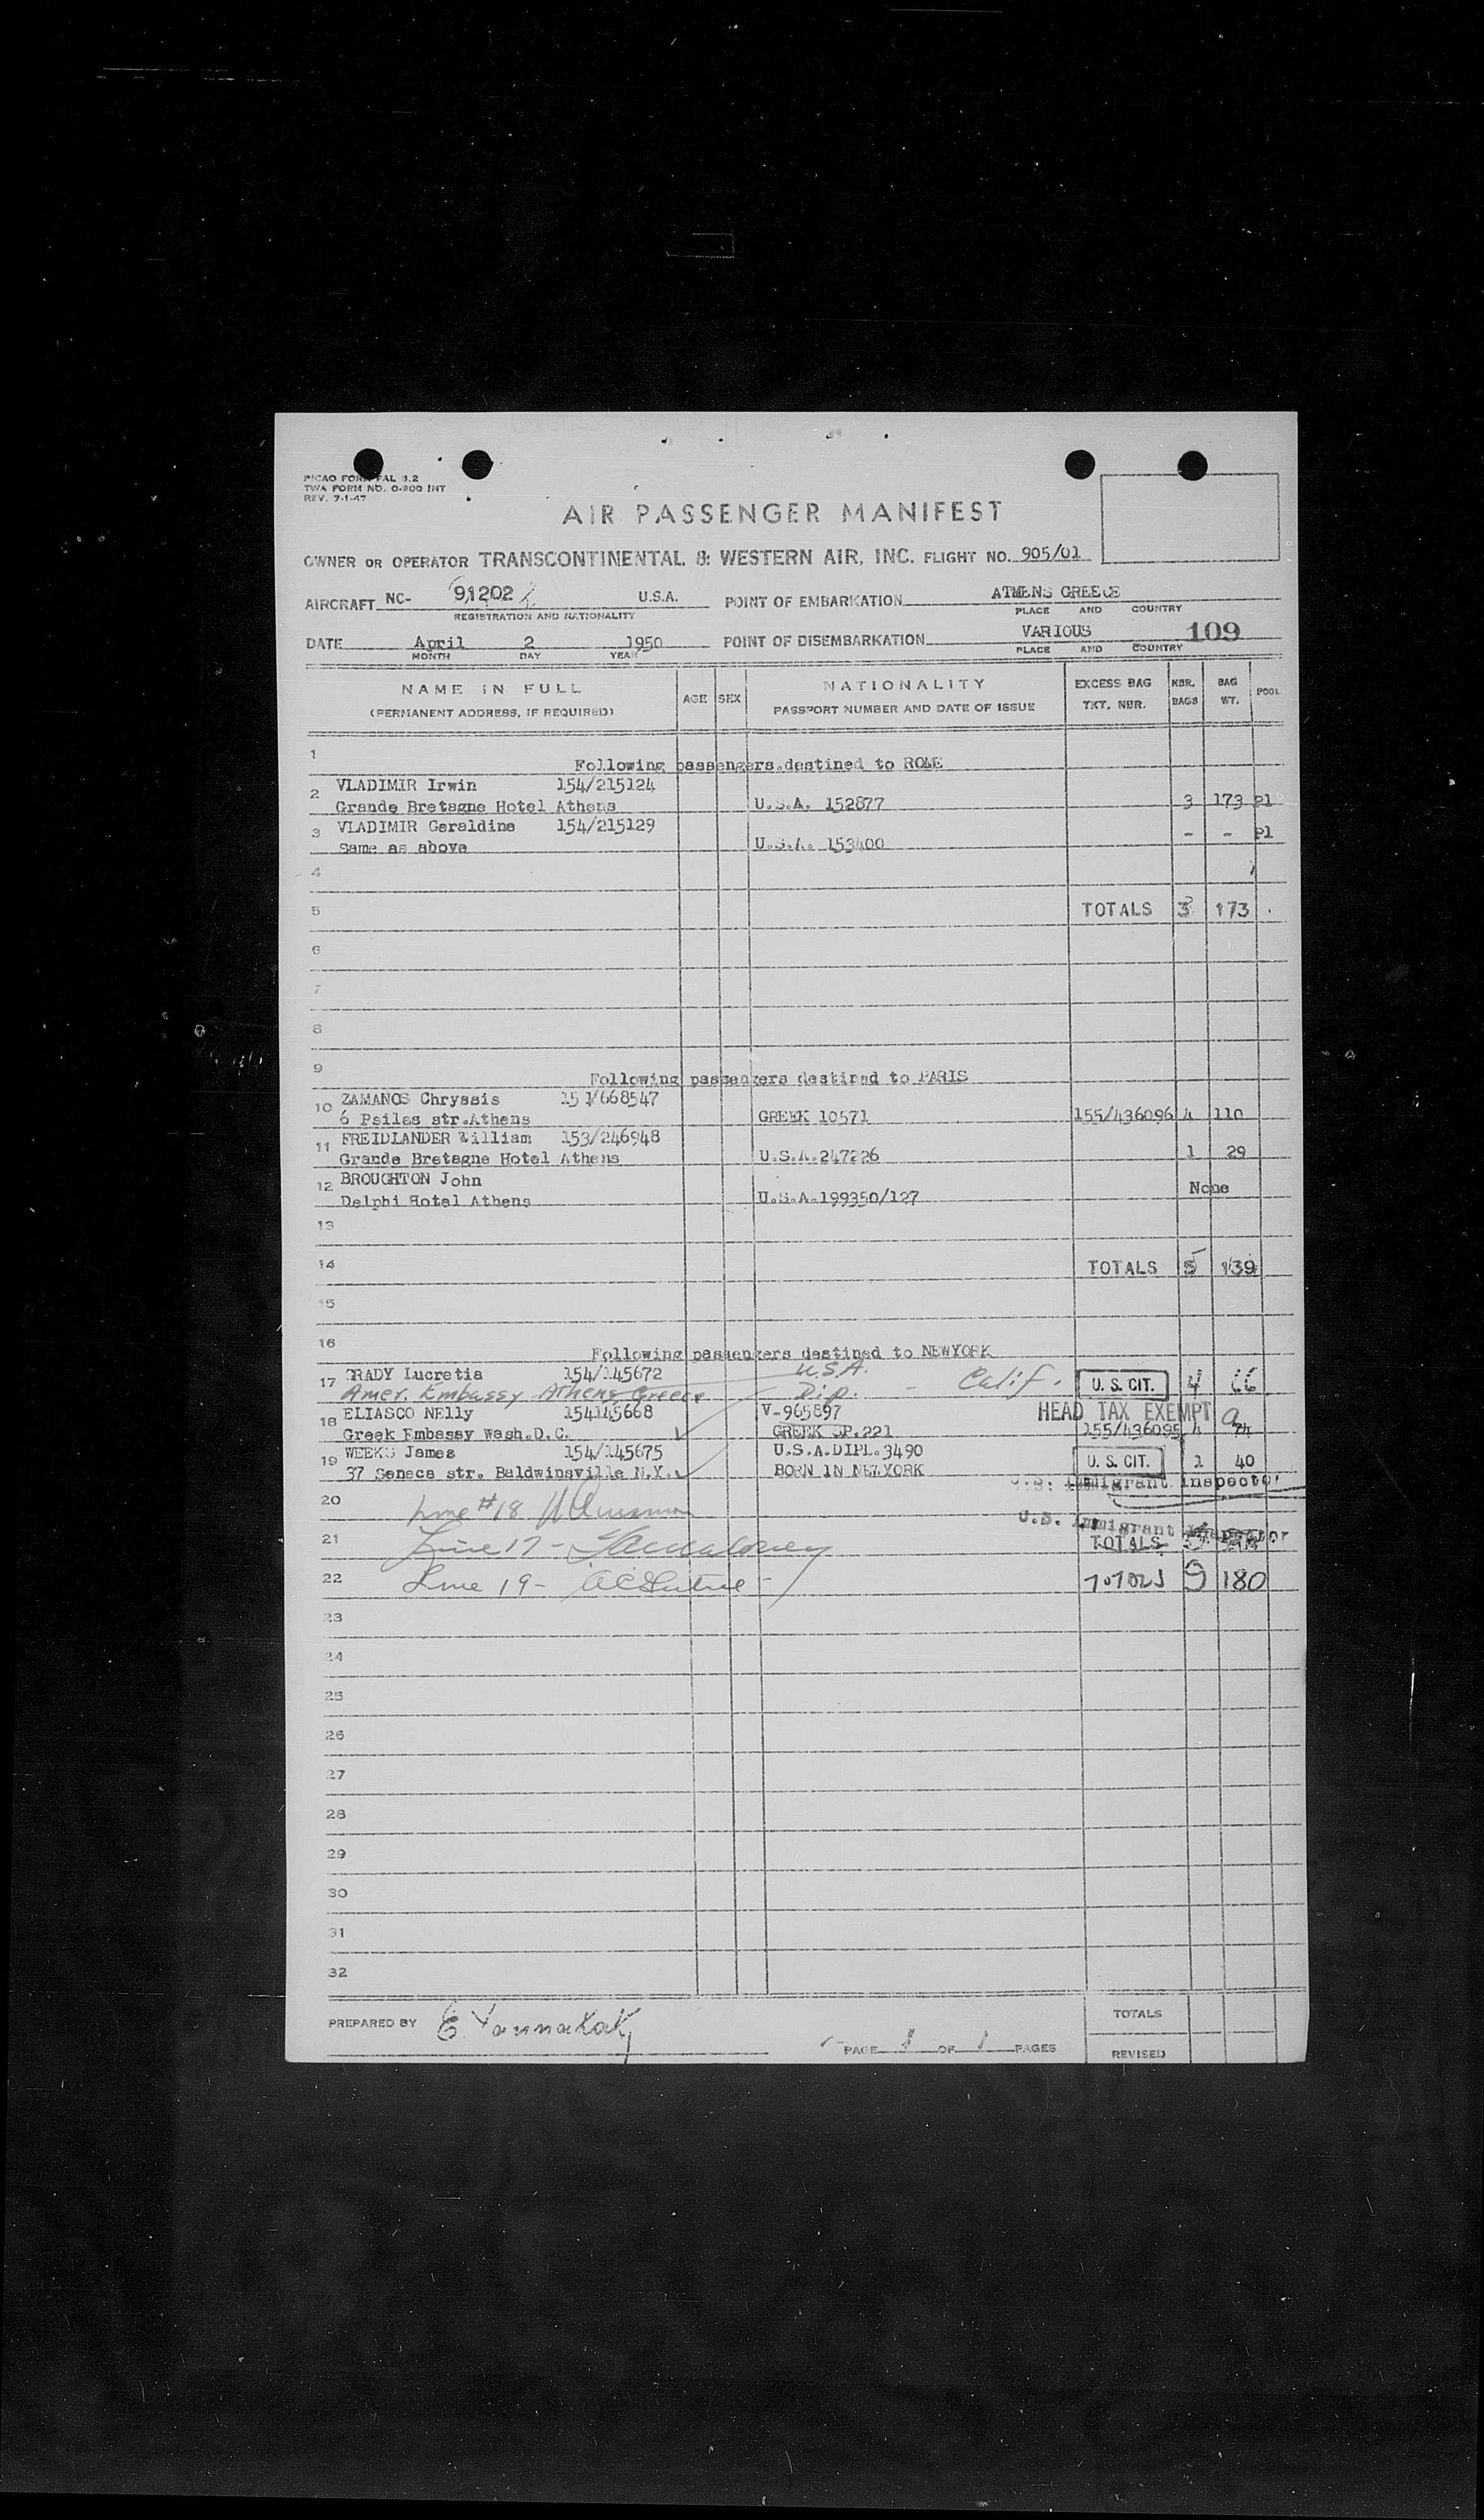 PICAO FORM FAL 3.2
TWA FORM NO. O-800 INT
REV. 7-1-47
AIR PASSENGER MANIFEST
OWNER OR OPERATOR TRANSCONTINENTAL & WESTERN AIR, INC. FLIGHT NO. 905/01
AIRCRAFT NC- 91202 U.S.A. POINT OF EMBARKATION ATHENS GREECE
REGISTRATION AND NATIONALITY PLACE AND COUNTRY
DATE April 2 1950 POINT OF DISEMBARKATION VARIOUS 109
MONTH DAY YEAR PLACE AND COUNTRY
NAME IN FULL AGE SEX NATIONALITY EXCESS BAG NBR. BAG POOL
(PERMANENT ADDRESS, IF REQUIRED) PASSPORT NUMBER AND DATE OF ISSUE TKT. NBR. BAGS WT.
1 Following passengers.destined to ROME
2 VLADIMIR Irwin 154/215124
Grande Bretagne Hotel Athens U.S.A. 152877 3 173 Pl
3 VLADIMIR Geraldine 154/215129 - - Pl
Same as above U.S.A. 153400
4
5 TOTALS 3 173
6
7
8
9 Following passengers destined to PARIS
10 ZAMANOS Chryssis 15 1/668547
6 Psilas str.Athens GREEK 10571 155/436096 4 110
11 FREIDLANDER William 153/246948
Grande Bretagne Hotel Athens U.S.A.247226 1 29
12 BROUGHTON John None
Delphi Hotel Athens U.S.A.199350/127
13
14 TOTALS 5 139
15
16 Following passengers destined to NEWYORK
17 GRADY Lucretia 154/145672 U.S.A. Calif. U. S. CIT. 4 66
Amer. Embassy Athens Greece Dip. -
18 ELIASCO NElly 154145668 V-965897 HEAD TAX EXEMPT
Greek Embassy Wash.D.C. GREEK DP.221 155/436095 4 74
19 WEEKS James 154/145675 U.S.A.DIPL.3490 U. S. CIT. 1 40
37 Seneca str. Baldwinsville N.Y. BORN IN NEWYORK
U.S. Immigrant Inspector
20 Line #18
U.S. Immigrant Inspector
21 Line 17 - TOTALS
22 Line 19 - TOTALS 9 180
23
24
25
26
27
28
29
30
31
32
PREPARED BY E Yannakaky TOTALS
PAGE 1 OF 1 PAGES REVISED